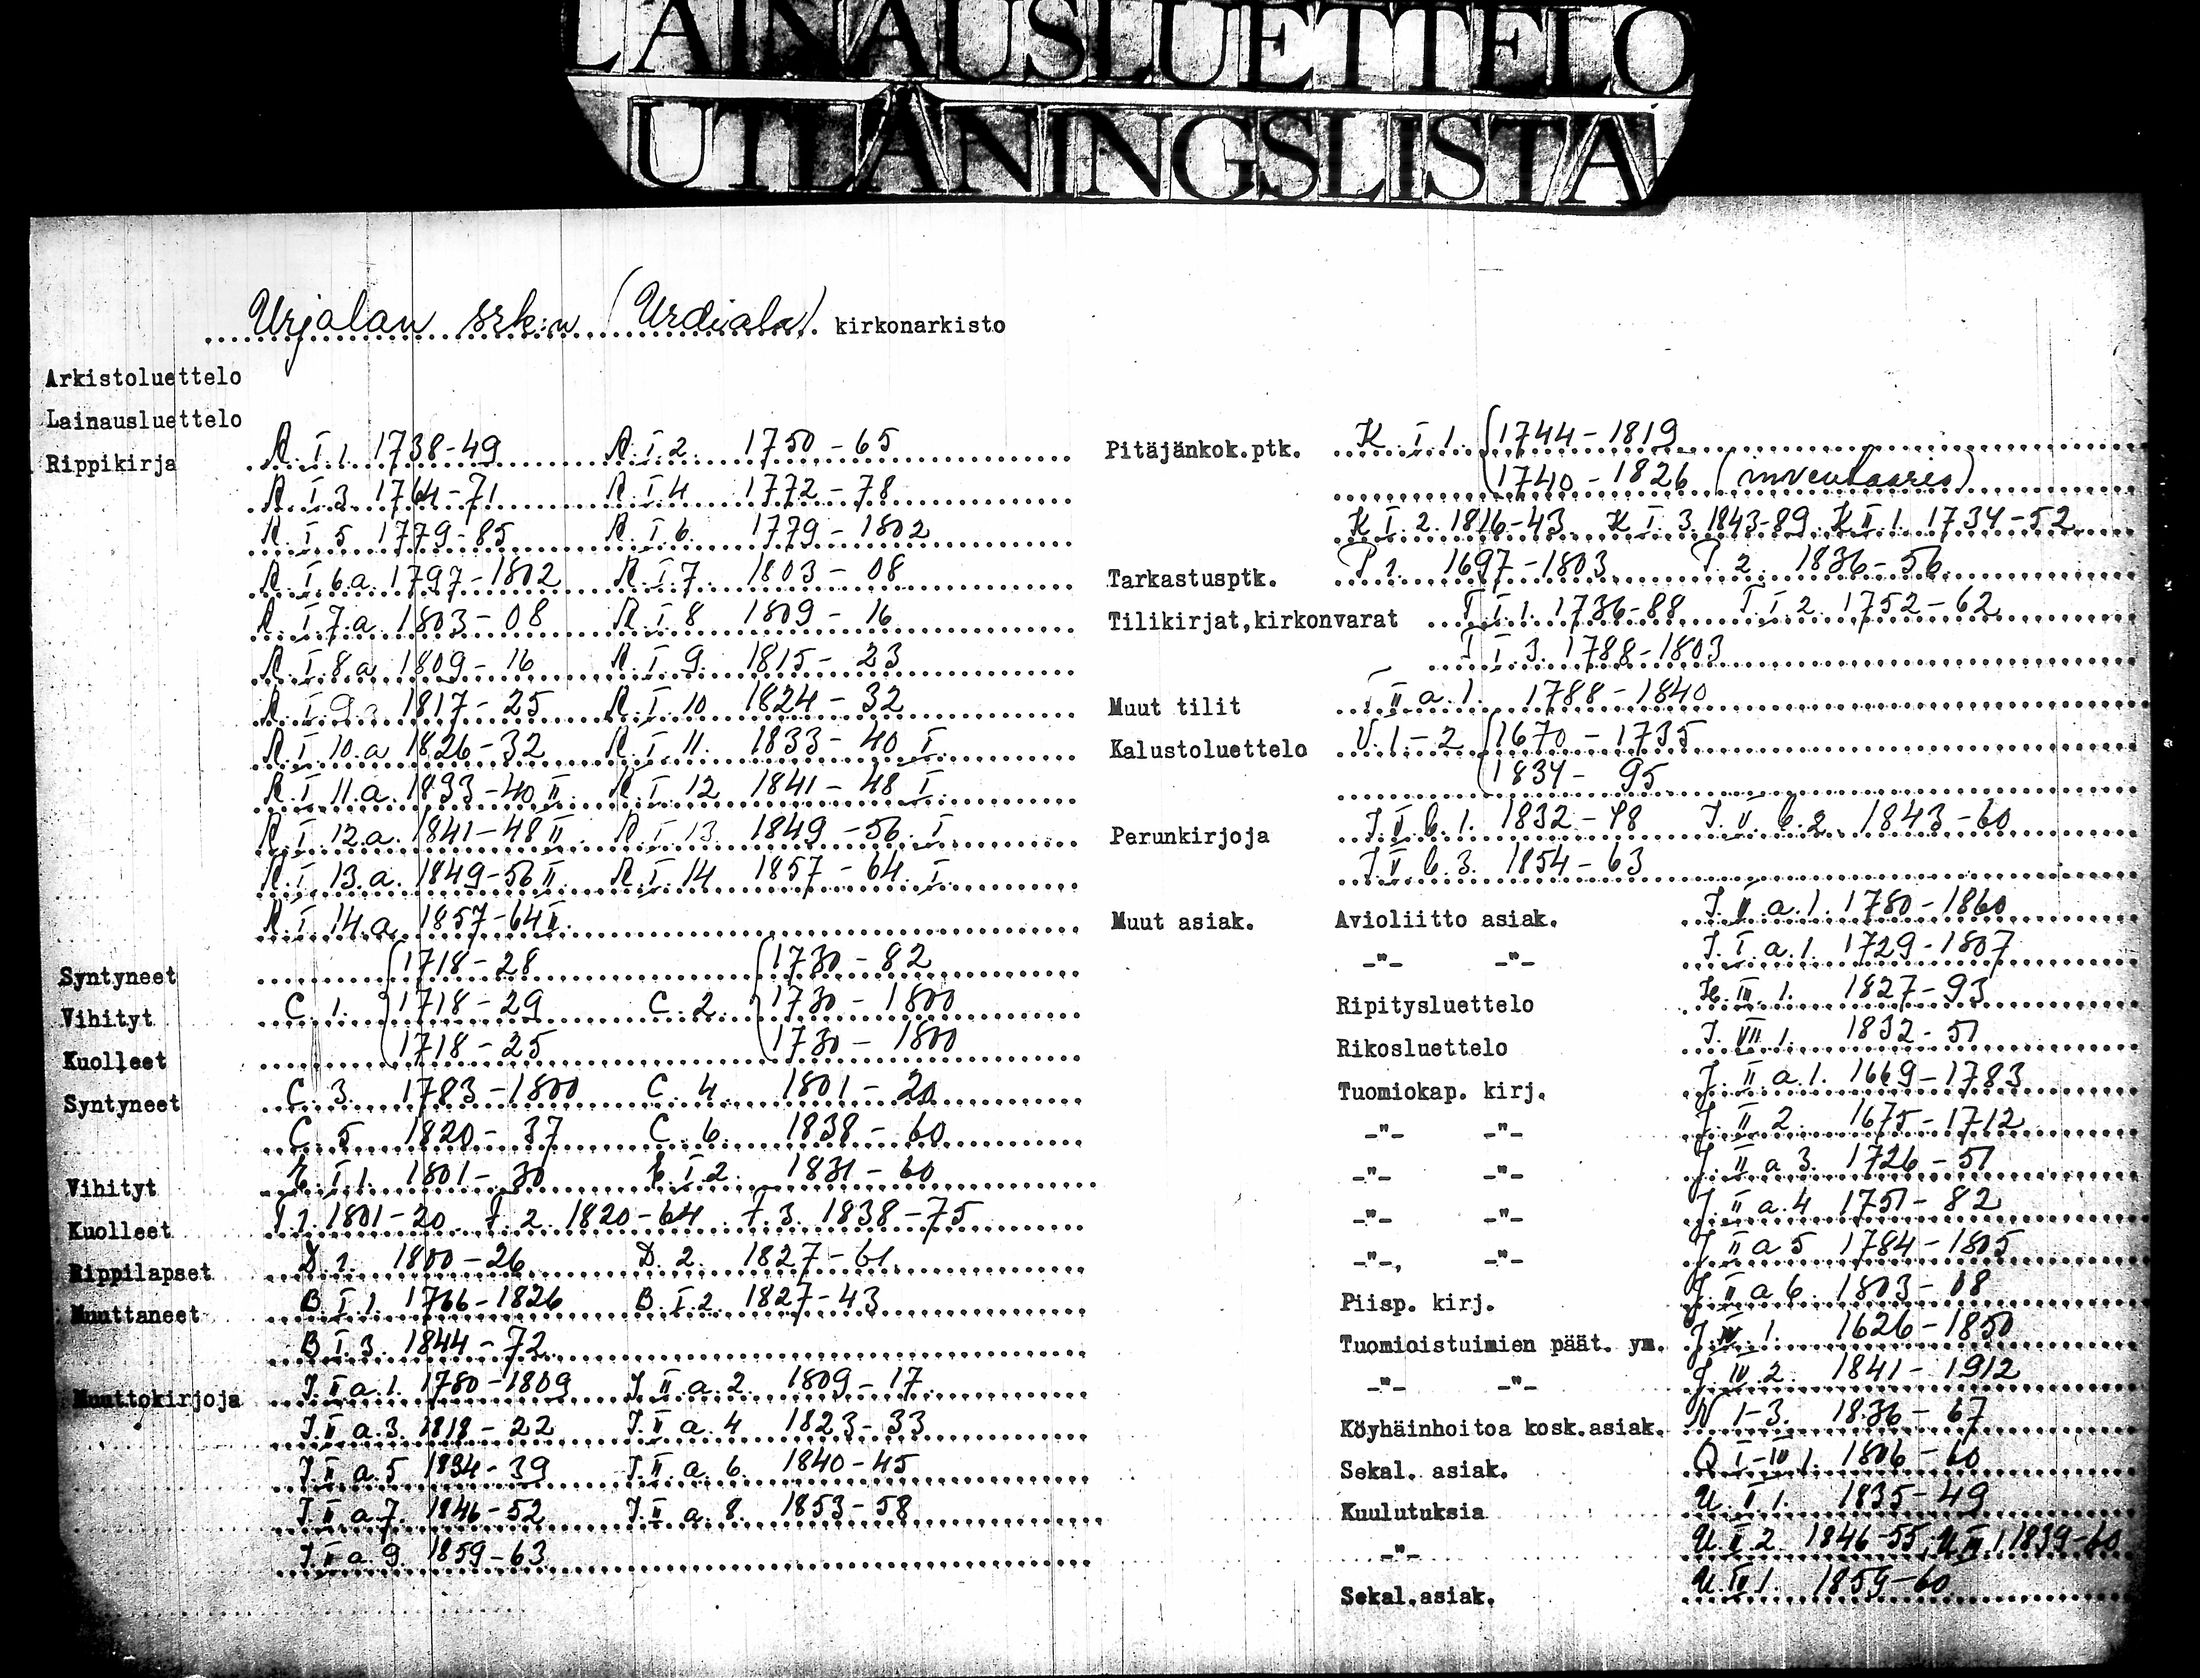 LAINAUSLUETTELO
UTLÅNINGSLISTA
Urjalan srk:n (Urdiala) kirkonarkisto
Arkistoluettelo
Lainausluettelo
Rippikirja A. I. 1. 1738-49 A. I. 2. 1750-65
A. I. 3 1764-71 A. I. 4 1772-78
A. I. 5 1779-85 A. I. 6. 1779-1802
A. I. 6.a. 1797-1802 A. I. 7. 1803-08
A. I. 7.a. 1803-08 A. I. 8 1809-16
A. I. 8.a 1809-16 A. I. 9. 1815-23
A. I. 9.a 1817-25 A. I. 10 1824-32
A. I. 10.a 1826-32 A. I. 11. 1833-40 I.
A. I. 11.a. 1833-40 II. A. I. 12 1841-48 I.
A. I. 12.a. 1841-48 II A. I. 13. 1849-56. I.
A. I. 13.a. 1849-56 II. A. I. 14 1857-64. I.
A. I. 14.a. 1857-64 II.
Syntyneet 1718-28 1730-82
Vihityt C. 1. 1718-29 C. 2. 1730-1800
Kuolleet 1718-25 1730-1800
Syntyneet C. 3. 1783-1800 C. 4. 1801-20
C. 5 1820-37 C. 6. 1838-60
Vihityt E. I. 1. 1801-30 E. I. 2. 1831-60
Kuolleet F. 1. 1801-20. F. 2. 1820-64 F. 3. 1838-75
Rippilapset D. 1. 1800-26 D. 2. 1827-61.
Muuttaneet B. I. 1. 1766-1826 B. I. 2. 1827-43
B I 3. 1844-72
Muuttokirjoja J. II a. 1. 1780-1809 J. II. a. 2. 1809-17.
J. II a. 3. 1818-22 J. II a. 4 1823-33
J. II a. 5 1834-39 J. II. a. 6. 1840-45
J. II a. 7. 1846-52 J. II a. 8. 1853-58
J. II a. 9. 1859-63.
Pitäjänkok.ptk. K. I. 1. (1744-1819
(1740-1826 (inventaario)
K I. 2. 1816-43. K I. 3. 1843-89. K II. 1. 1734-52
Tarkastusptk. P 1. 1697-1803 P. 2. 1836-56
Tilikirjat,kirkonvarat T. I. 1. 1736-88 T. I. 2. 1752-62
T I. 3. 1788-1803
Muut tilit II a. 1. 1788-1840
Kalustoluettelo U. 1-2 (1670-1735
(1834-95
Perunkirjoja J. V. b. 1. 1832-48 J. V. b. 2. 1843-60
J. V b. 3. 1854-63
Muut asiak. Avioliitto asiak. J. V. a. 1. 1780-1860
-"- -"- J. I. a. 1. 1729-1807
Ripitysluettelo III. 1. 1827-93
Rikosluettelo J. VII 1. 1832-51
Tuomiokap. kirj. J. II. a. 1. 1669-1783
-"- -"- J. II 2. 1675-1712
-"- -"- J. II a 3. 1726-51
-"- -"- J. II a. 4 1751-82
-"-, -"- J. II a 5 1784-1805
Piisp. kirj. J. II a 6. 1803-08
Tuomioistuimien päät. ym. J. IV. 1. 1626-1850
-"- -"- J. IV. 2. 1841-1912
Köyhäinhoitoa kosk.asiak. N 1-3. 1836-67
Sekal. asiak. Q I-IV 1. 1806-60
Kuulutuksia U. I. 1. 1835-49
-"- U. II. 2. 1846-55, U. III. 1. 1839-60
Sekal.asiak. U. IV 1. 1859-60.